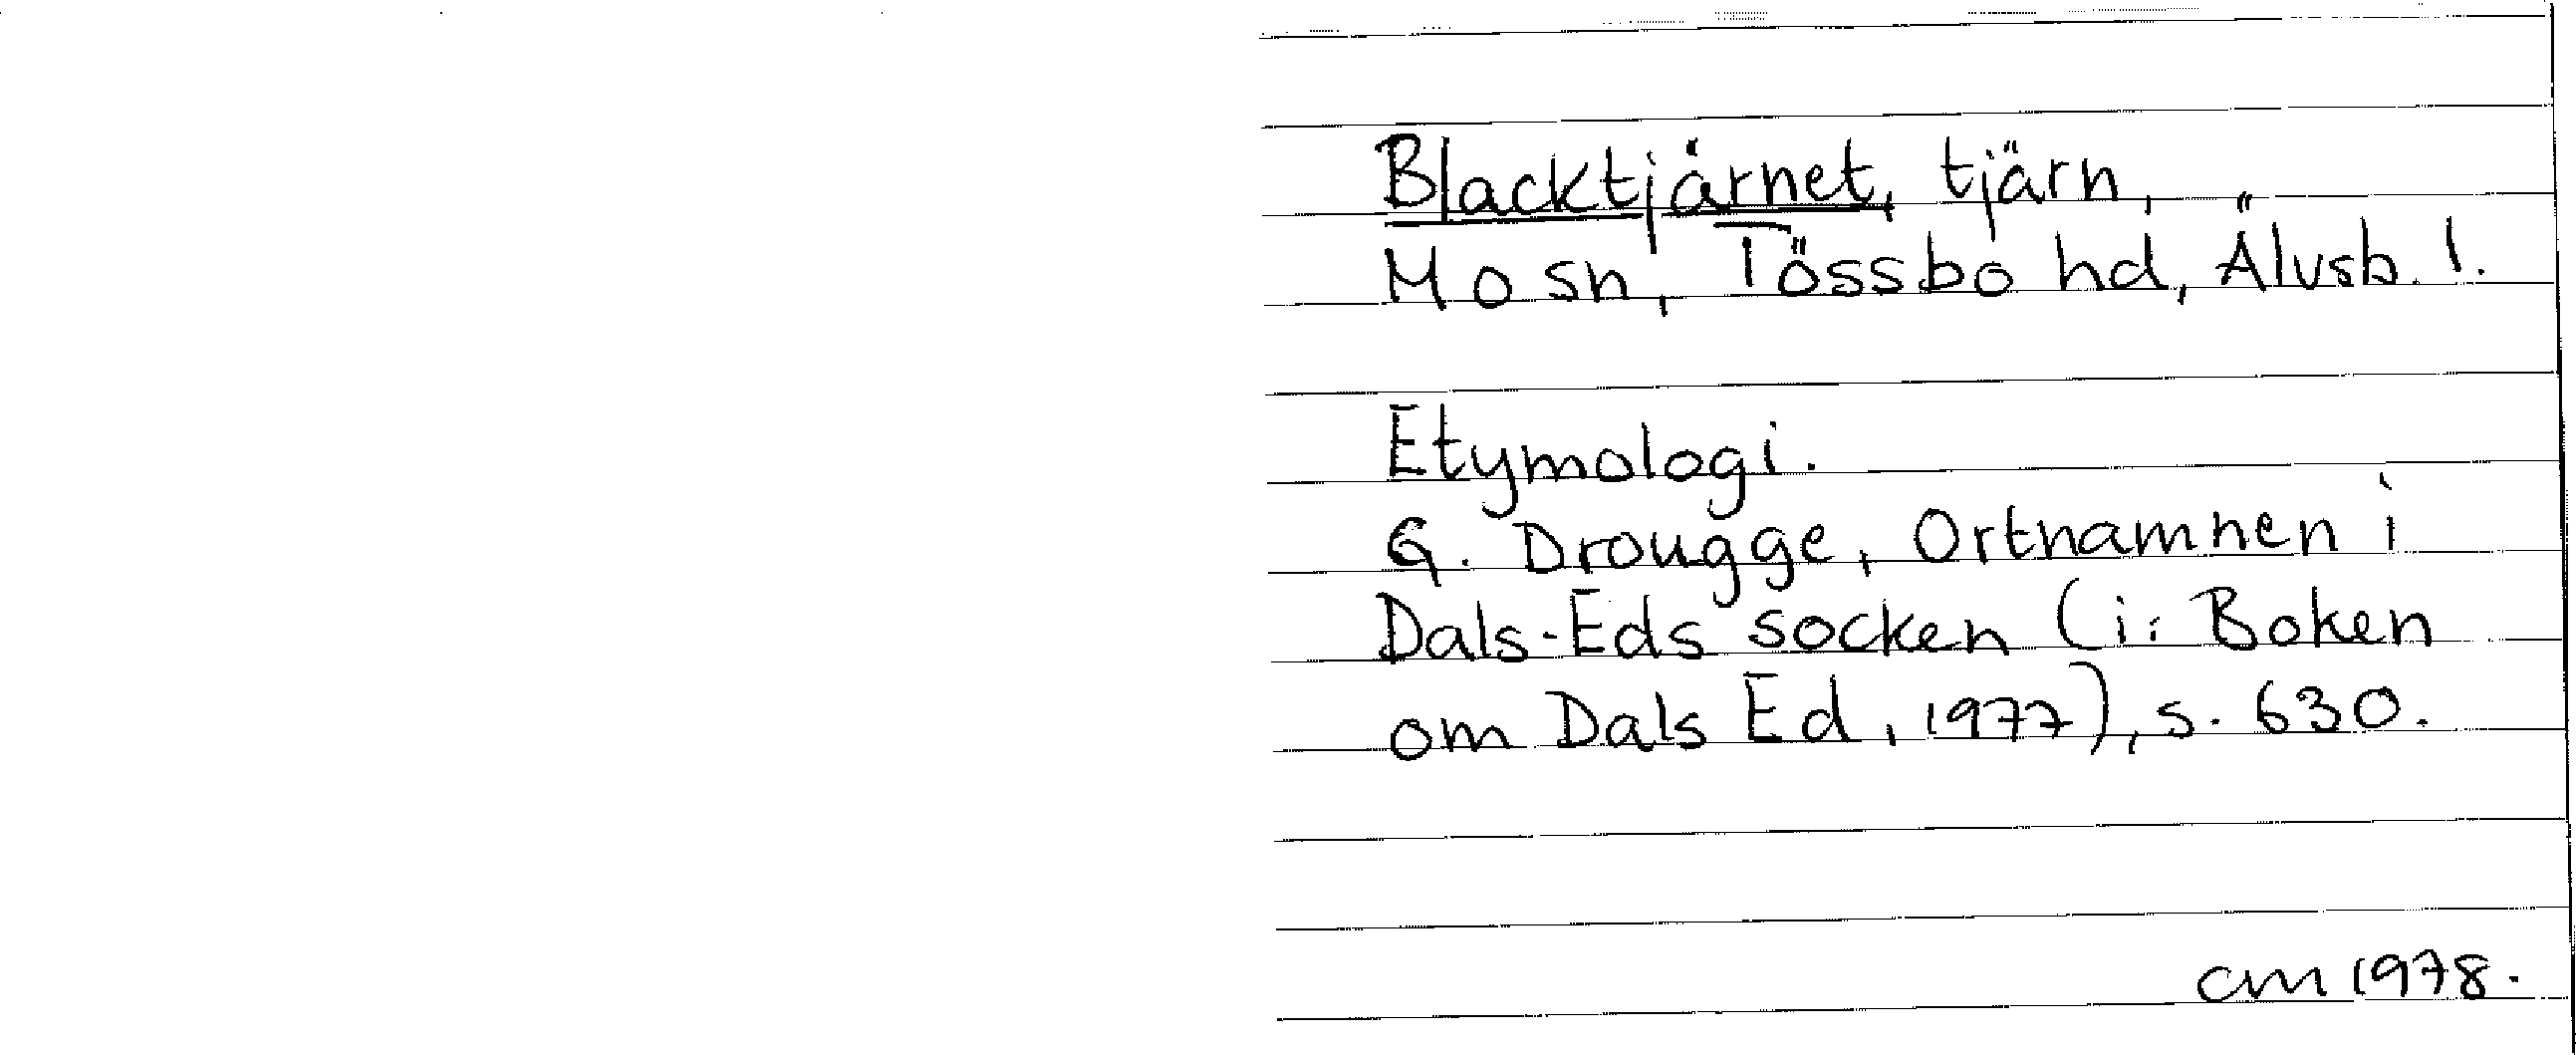 Blacktjärnet, tjärn,
Mo sn, Tössbo hd, Älvsb. l.
Etymologi.
G. Drougge, Ortnamnen i
Dals-Eds socken (i: Boken
om Dals Ed, 1977), s. 630.
CM 1978.